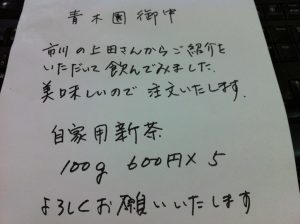 青木園御中
市川の上田さんからご紹介を
いただいて飲んでみました.
美味しいので注文いたします.
自家用新茶
100g 600円×5
よろしくお願いいたします